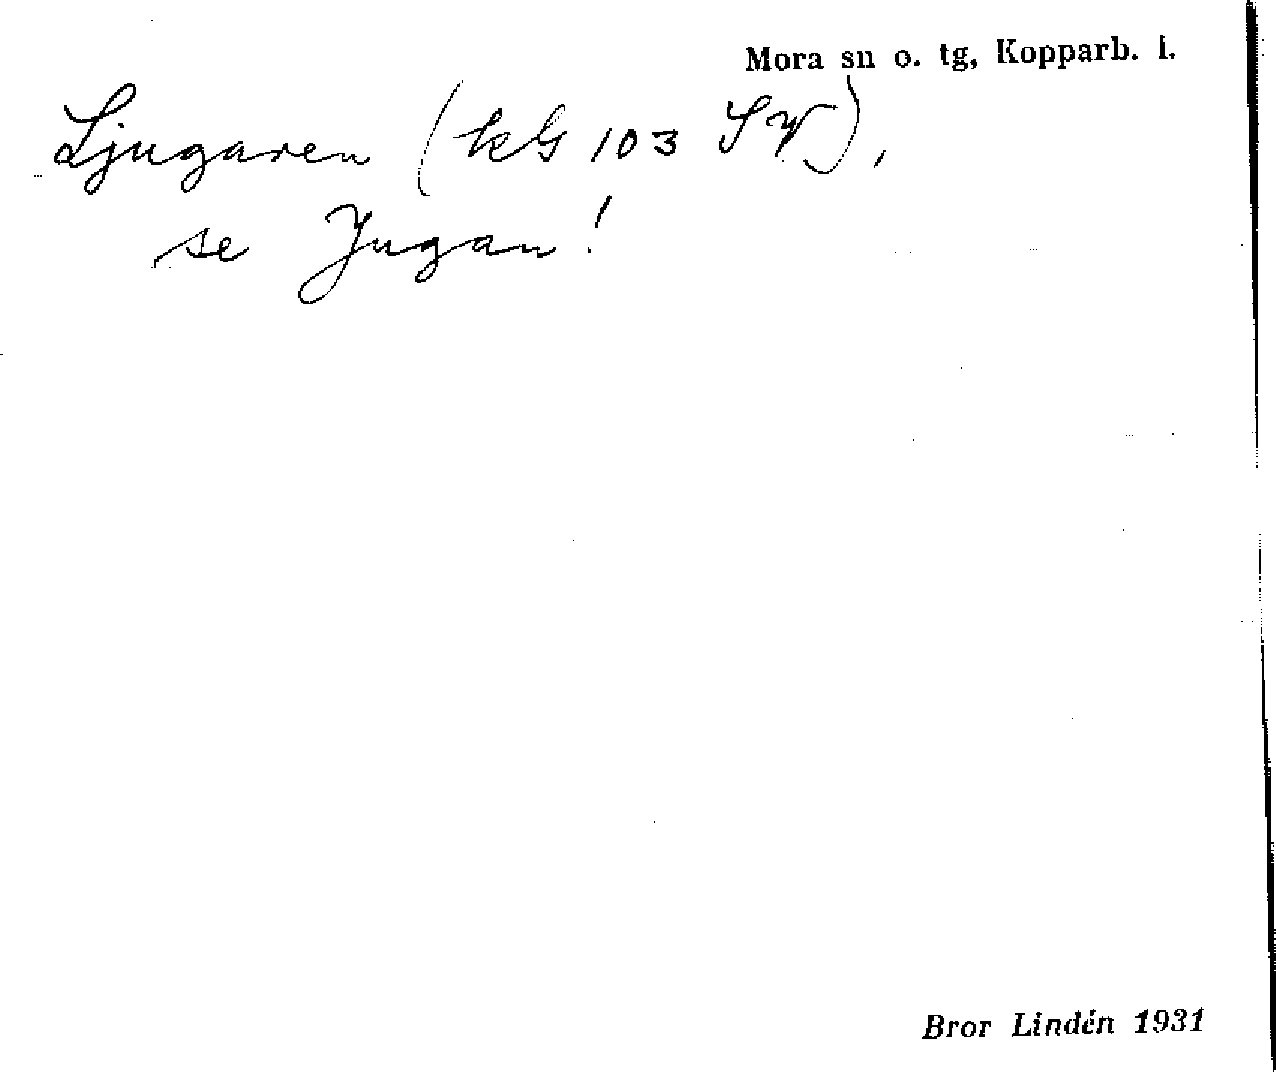 Mora sn o. tg, Kopparb. l.
Ljugaren (kbl 103 SV),
se Jugan!
Bror Lindén 1931